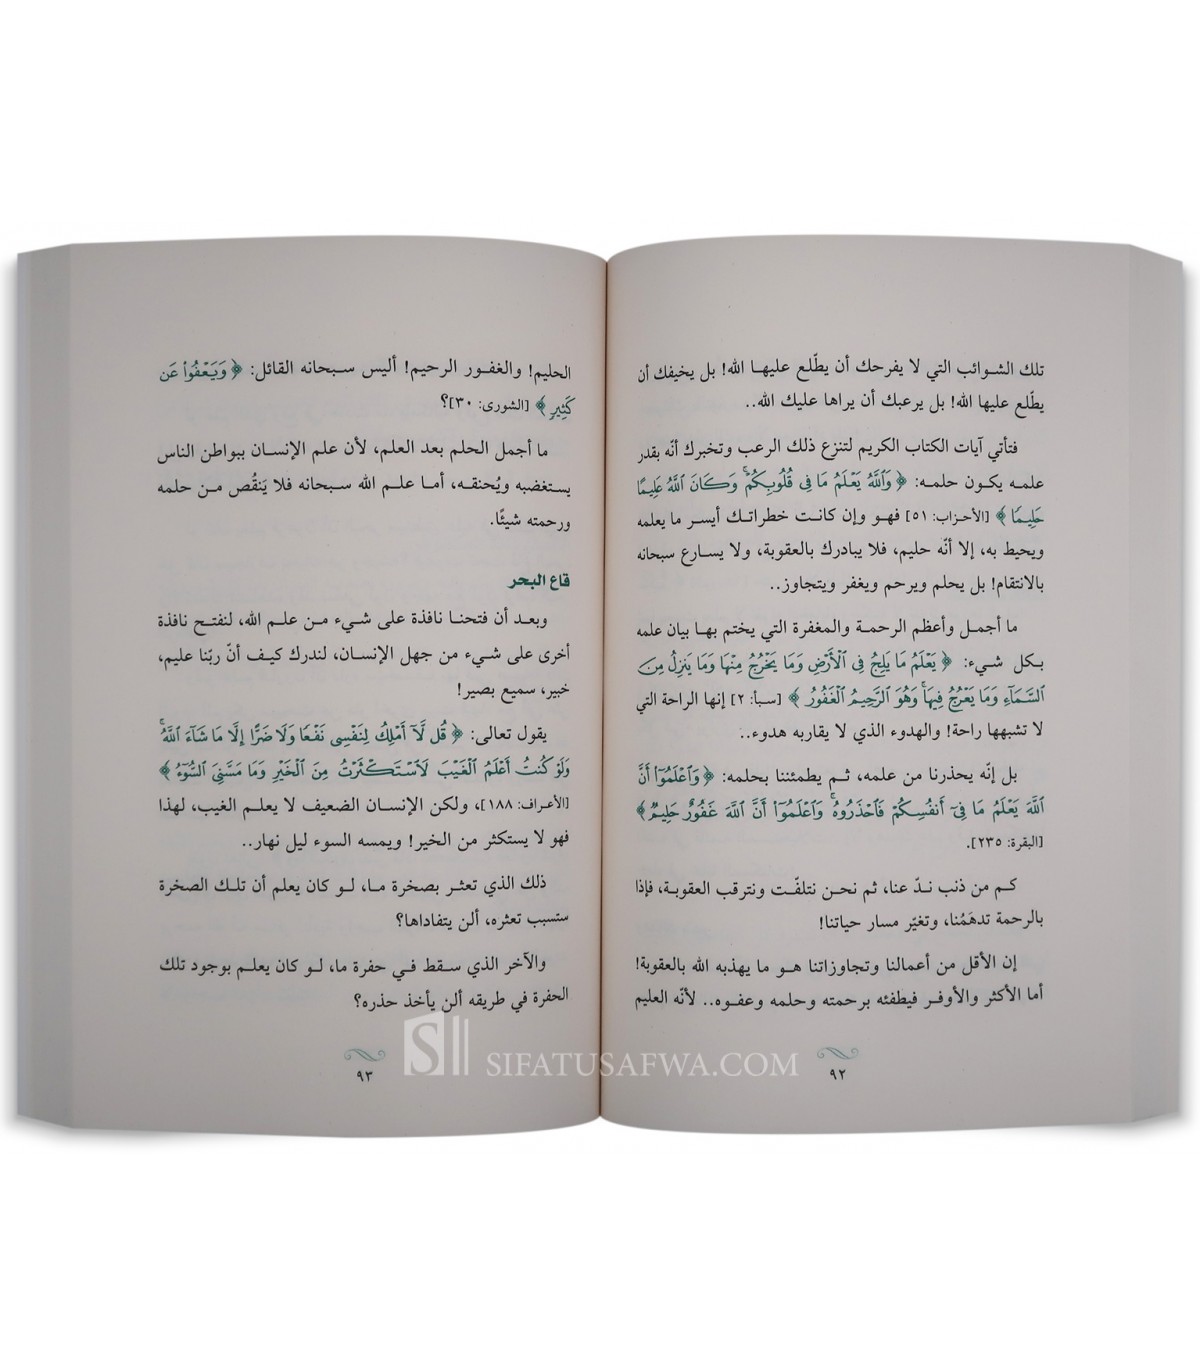 تلك الشوائب التي لا يفرحك أن يطّلع عليها الله! بل يخيفك أن
يطّلع عليها الله! بل يرعبك أن يراها عليك الله..
فتأتي آيات الكتاب الكريم لتنزع ذلك الرعب وتخبرك أنّه بقدر
علمه يكون حلمه: ﴿ وَٱللَّهُ يَعْلَمُ مَا فِى قُلُوبِكُمْ ۚ وَكَانَ ٱللَّهُ عَلِيمًا
حَلِيمًا ﴾ [الأحزاب: ٥١] فهو وإن كانت خطراتك أيسر ما يعلمه
ويحيط به، إلا أنّه حليم، فلا يبادرك بالعقوبة، ولا يسارع سبحانه
بالانتقام! بل يحلم ويرحم ويغفر ويتجاوز..
ما أجمل وأعظم الرحمة والمغفرة التي يختم بها بيان علمه
بكل شيء: ﴿ يَعْلَمُ مَا يَلِجُ فِى ٱلْأَرْضِ وَمَا يَخْرُجُ مِنْهَا وَمَا يَنزِلُ مِنَ
ٱلسَّمَآءِ وَمَا يَعْرُجُ فِيهَا ۚ وَهُوَ ٱلرَّحِيمُ ٱلْغَفُورُ ﴾ [سبأ: ٢] إنها الراحة التي
لا تشبهها راحة! والهدوء الذي لا يقاربه هدوء..
بل إنّه يحذرنا من علمه، ثم يطمئننا بحلمه: ﴿ وَٱعْلَمُوٓا۟ أَنَّ
ٱللَّهَ يَعْلَمُ مَا فِىٓ أَنفُسِكُمْ فَٱحْذَرُوهُ ۚ وَٱعْلَمُوٓا۟ أَنَّ ٱللَّهَ غَفُورٌ حَلِيمٌ ﴾
[البقرة: ٢٣٥].
كم من ذنب ندّ عنا، ثم نحن نتلفّت ونترقب العقوبة، فإذا
بالرحمة تدهَمُنا، وتغيّر مسار حياتنا!
إن الأقل من أعمالنا وتجاوزاتنا هو ما يهذبه الله بالعقوبة!
أما الأكثر والأوفر فيطفئه برحمته وحلمه وعفوه.. لأنّه العليم
٩٢
الحليم! والغفور الرحيم! أليس سبحانه القائل: ﴿ وَيَعْفُوا۟ عَن
كَثِيرٍ ﴾ [الشورى: ٣٠]؟
ما أجمل الحلم بعد العلم، لأن علم الإنسان ببواطن الناس
يستغضبه ويُحنقه، أما علم الله سبحانه فلا يَنقُص من حلمه
ورحمته شيئًا.
قاع البحر
وبعد أن فتحنا نافذة على شيء من علم الله، لنفتح نافذة
أخرى على شيء من جهل الإنسان، لندرك كيف أنّ ربّنا عليم،
خبير، سميع بصير!
يقول تعالى: ﴿ قُل لَّآ أَمْلِكُ لِنَفْسِى نَفْعًا وَلَا ضَرًّا إِلَّا مَا شَآءَ ٱللَّهُ ۚ
وَلَوْ كُنتُ أَعْلَمُ ٱلْغَيْبَ لَٱسْتَكْثَرْتُ مِنَ ٱلْخَيْرِ وَمَا مَسَّنِىَ ٱلسُّوٓءُ ﴾
[الأعراف: ١٨٨]، ولكن الإنسان الضعيف لا يعلم الغيب، لهذا
فهو لا يستكثر من الخير! ويمسه السوء ليل نهار..
ذلك الذي تعثر بصخرة ما، لو كان يعلم أن تلك الصخرة
ستسبب تعثره، ألن يتفاداها؟
والآخر الذي سقط في حفرة ما، لو كان يعلم بوجود تلك
الحفرة في طريقه ألن يأخذ حذره؟
٩٣
SIFATUSAFWA.COM